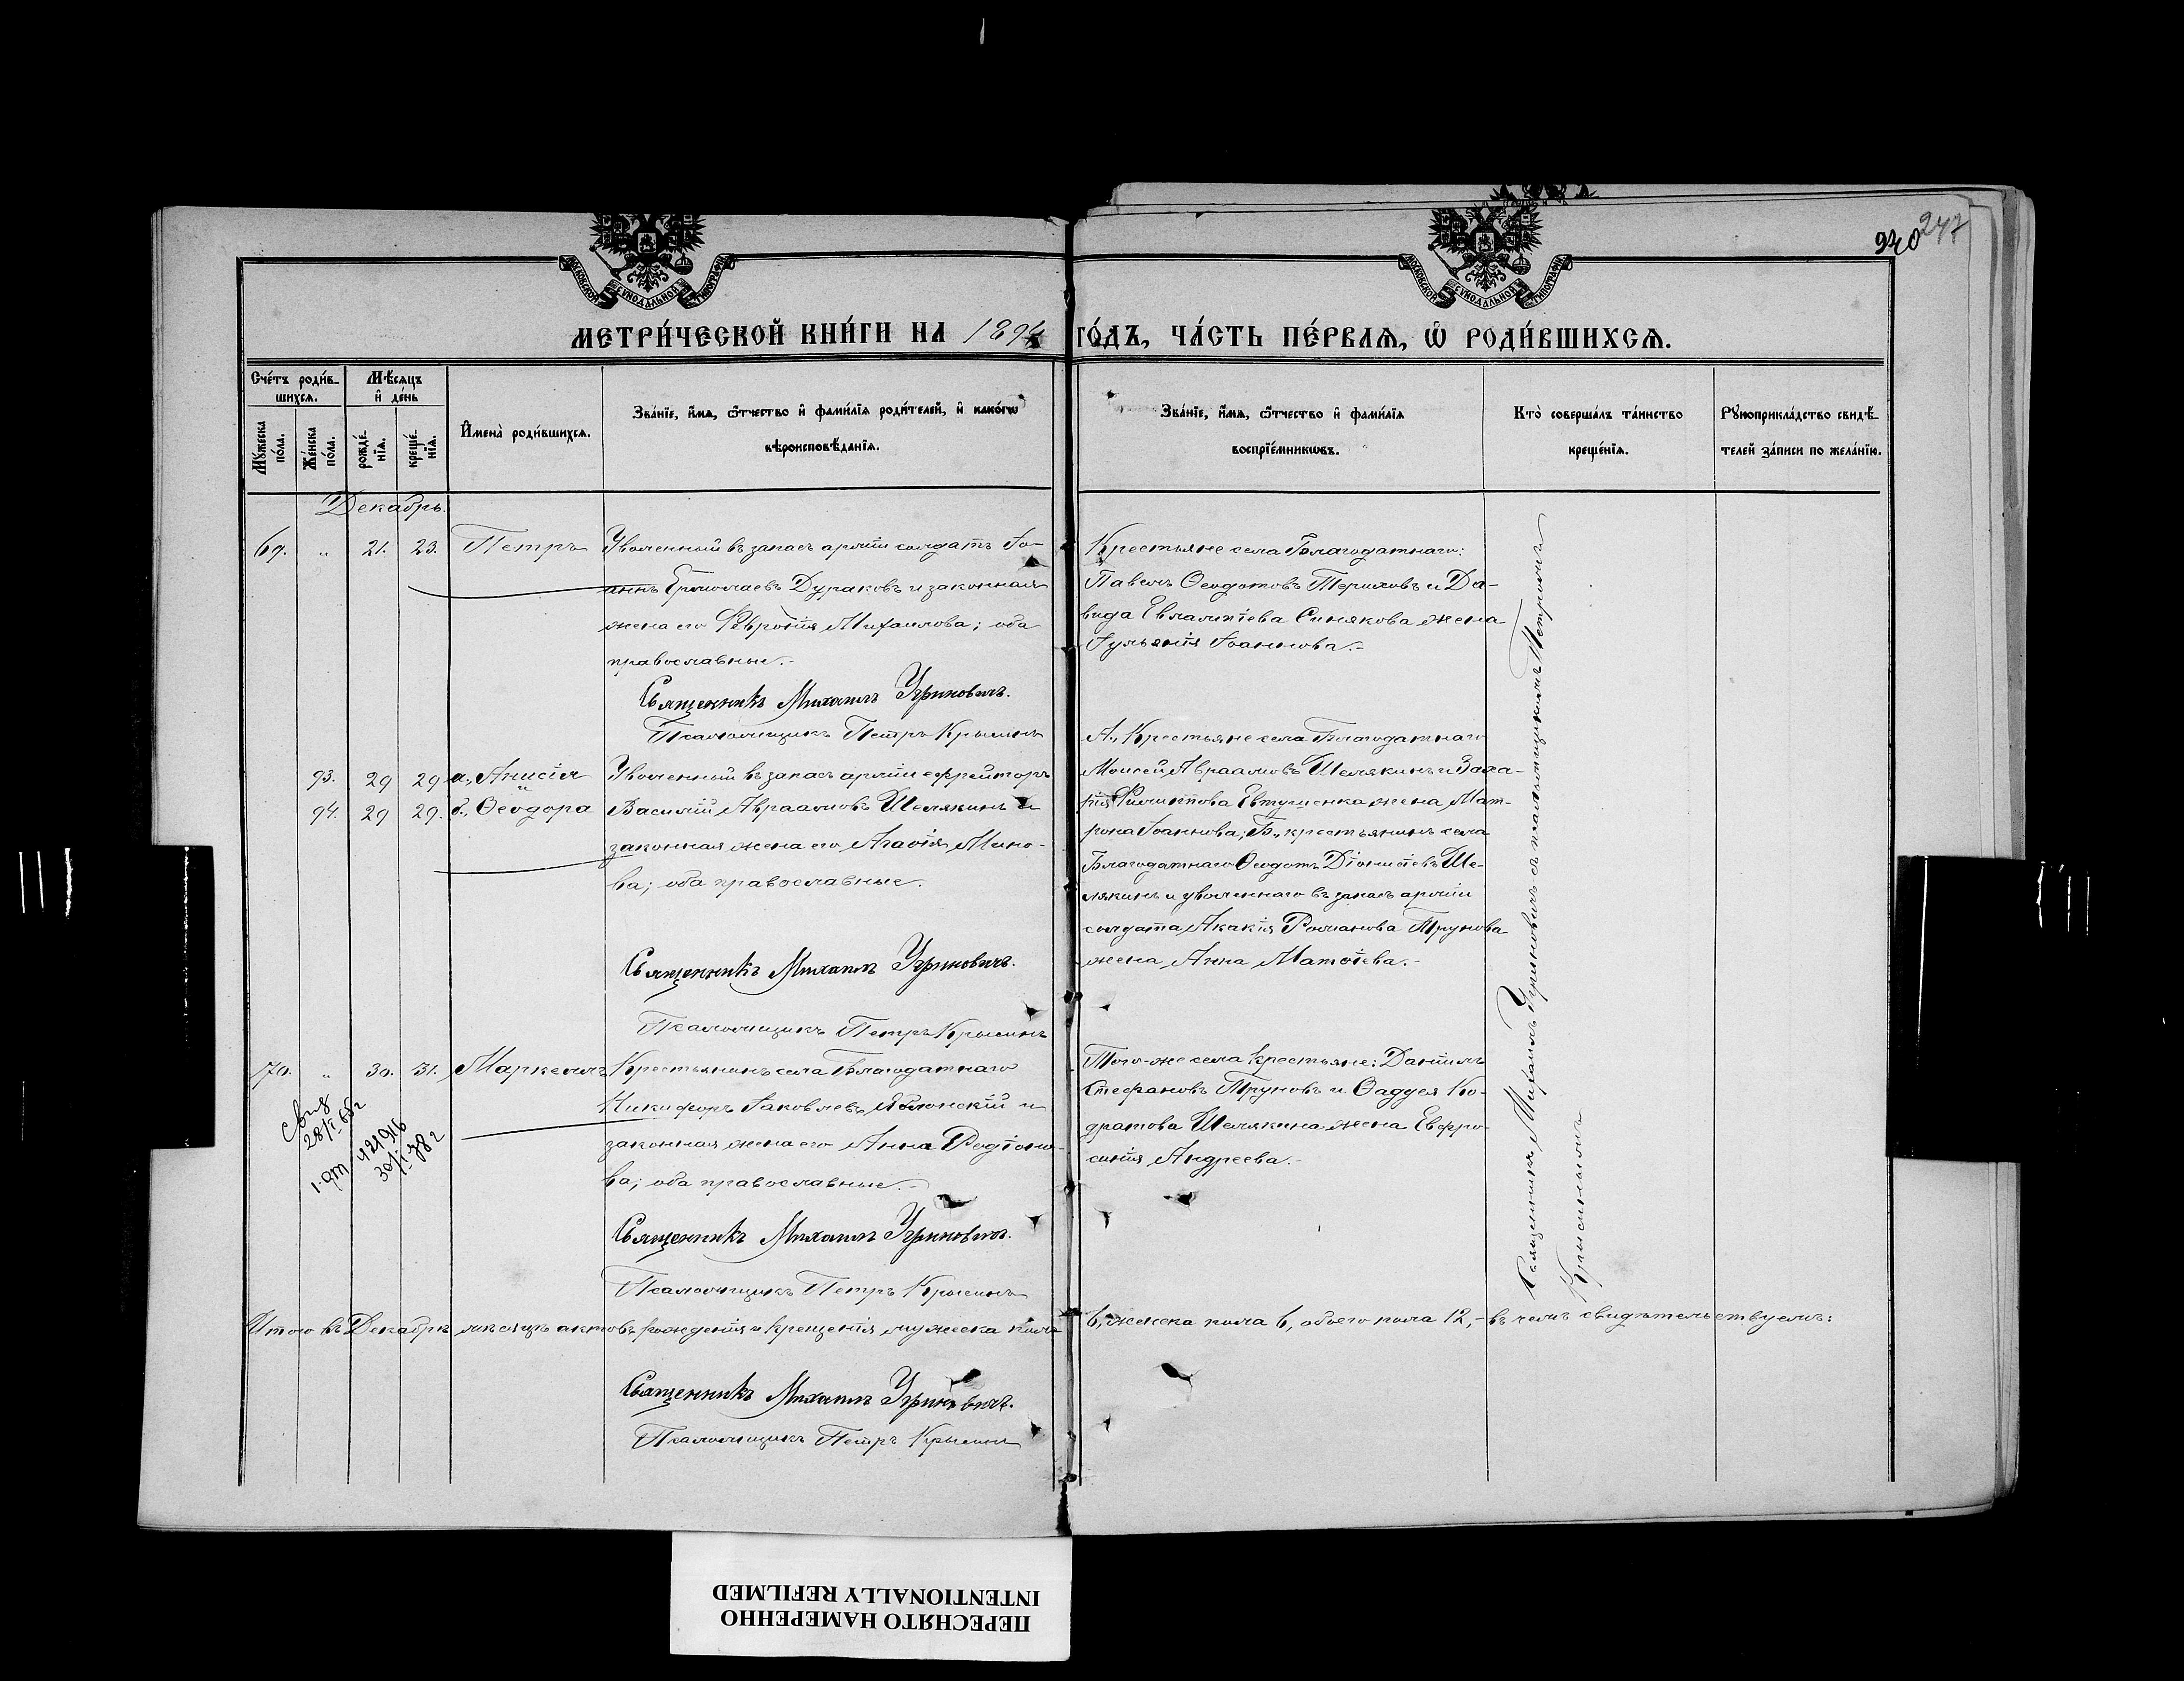 940 247
МОСКОВСКОЙ СѴНОДАЛЬНОЙ ТИПОГРАФІИ
МОСКОВСКОЙ СѴНОДАЛЬНОЙ ТИПОГРАФІИ
МЕТРИ́ЧЕСКОЙ КНИ́ГИ НА 1894 ГО́ДЪ, ЧА́СТЬ ПЕ́РВАѦ, Ѡ҆ РОДИ́ВШИХСѦ.
Сче́тъ роди́в-
шихсѧ.
Мꙋ́жеска по́ла.
Же́нска по́ла.
Мѣ́сѧцъ
и҆ де́нь
рожде́-
нїѧ.
креще́-
нїѧ.
И҆мена̀ роди́вшихсѧ.
Зва́нїе, и҆́мѧ, ѻ҆́тчество и҆ фами́лїѧ роди́телей, и҆ како́гѡ
вѣроисповѣ́данїѧ.
Зва́нїе, и҆́мѧ, ѻ҆́тчество и҆ фами́лїѧ
воспрїе́мникѡвъ.
Кто̀ соверша́лъ та́инство
креще́нїѧ.
Рꙋкоприкла́дство свидѣ́-
телей за́писи по жела́нїю.
Декабрь.
69. „ 21. 23. Петръ
Уволенный въ запасъ арміи солдатъ Іо-
аннъ Ермолаевъ Дураковъ и законная
жена его Феѵронія Михаилова; оба
православные.-
Священникъ Михаилъ Угриновичъ.
Псаломщикъ Петръ Крысинъ
Крестьяне села Благодатнаго:
Павелъ Ѳеодотовъ Териховъ и Да-
вида Евлампіева Синякова жена
Іуліанія Іоаннова.-
93. 29 29 а., Анисія
и
94. 29 29. б., Ѳеодора
Уволенный въ запасъ арміи ефрейторъ
Василій Авраамовъ Шелякинъ и
законная жена его Агаѳія Мино-
ва; оба православные.
Священникъ Михаилъ Угриновичъ.
Псаломщикъ Петръ Крысинъ
А., Крестьяне села Благодатнаго
Моисей Авраамовъ Шелякинъ и Заха-
рія Филиппова Евтушенка жена Мат-
рона Іоаннова; Б., крестьянинъ села
Благодатнаго Ѳеодотъ Діонисіевъ Ше-
лякинъ и уволеннаго въ запасъ арміи
солдата Акакія Романова Трунова
жена Анна Матѳіева.-
70. „ 30. 31. Маркеллъ
Крестьянинъ села Благодатнаго
Никифоръ Іаковлевъ Яблонскій и
законная жена его Анна Родіоно-
ва; оба православные.-
Священникъ Михаилъ Угриновичъ.
Псаломщикъ Петръ Крысинъ
Того-же села крестьяне: Даніилъ
Стефановъ Труновъ и Ѳаддея Ко-
дратова Шелякина жена Евфро-
синія Андреева.-
Священникъ Михаилъ Угриновичъ съ псаломщикомъ Петромъ
Крысинымъ
Итого въ Декабрѣ мѣсяцѣ актовъ рожденія и крещенія мужеска пола 6, женска пола 6, обоего пола 12,- въ чемъ свидѣтельствуемъ:
Священникъ Михаилъ Угриновичъ.
Псаломщикъ Петръ Крысинъ
ПЕРЕСНЯТО НАМЕРЕННО
INTENTIONALLY REFILMED